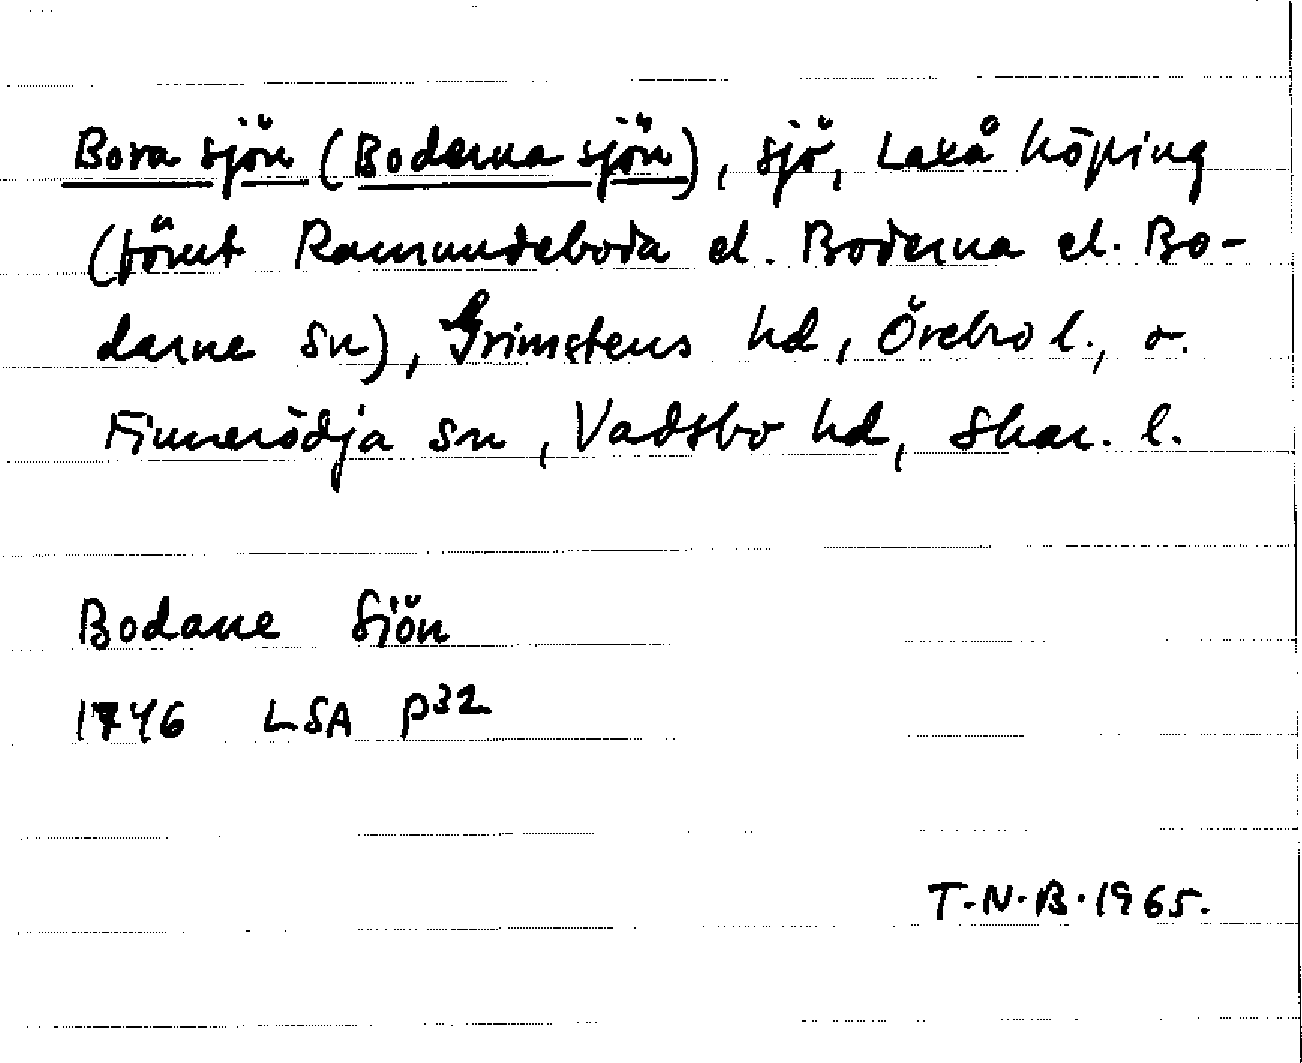 Borasjön (Bodernasjön), sjö, Laxå köping
(förut Ramundeboda el. Boderna el. Bo-
darne sn), Grimstens hd, Örebro l., o.
Finnerödja sn, Vadsbo hd, Skar. l.
Bodane Siön
1746 LSA P32
T.N.B. 1965.